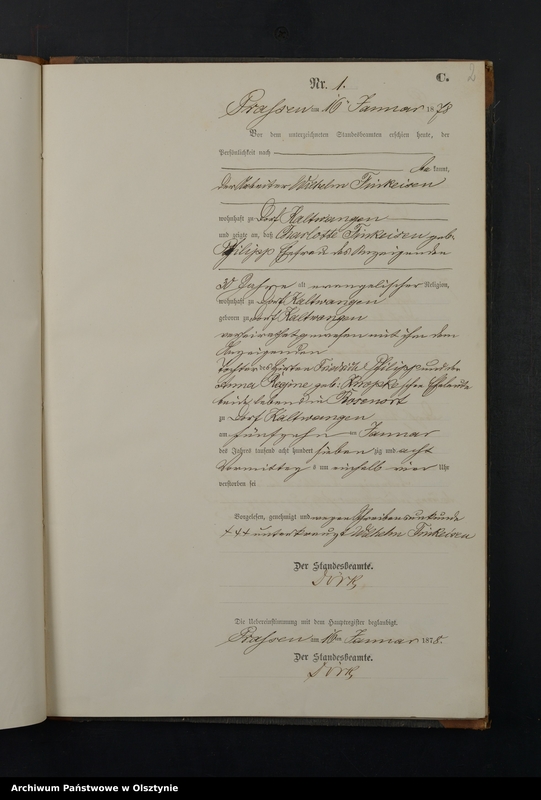 C.
2
Nr. 1.
Prassen am 16ten Januar 1878
Vor dem unterzeichneten Standesbeamten erschien heute, der
Persönlichkeit nach
be kannt,
der Arbeiter Wilhelm Finkeisen
wohnhaft zu Dorf Kaltwangen
und zeigte an, daß Charlotte Finkeisen geb.
Philipp Ehefrau des Anzeigenden
30 Jahre alt evangelischer Religion,
wohnhaft zu Dorf Kaltwangen
geboren zu Dorf Kaltwangen
verheirathet gewesen mit ihm dem
Anzeigenden
Tochter des Hirten Friedrich Philipp und der
Anna Regine geb. Knopke schen Eheleute
beide lebend in Rosenort
zu Dorf Kaltwangen
am fünfzehn ten Januar
des Jahres tausend acht hundert sieben zig und acht
Vormittag s um einhalb vier Uhr
verstorben sei
Vorgelesen, genehmigt und wegen Schreibensunkunde
+++ unterkreuzt Wilhelm Finkeisen
Der Standesbeamte.
Dörk
Die Uebereinstimmung mit dem Hauptregister beglaubigt.
Prassen am 16ten Januar 1878.
Der Standesbeamte.
Dörk
Archiwum Państwowe w Olsztynie